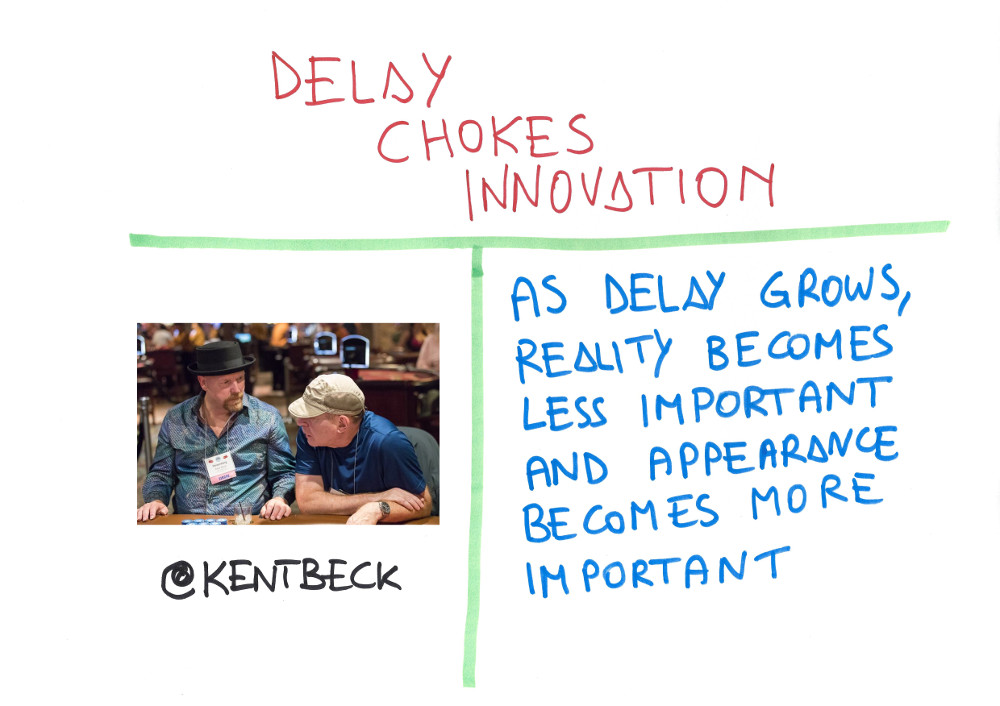 DELAY
CHOKES
INNOVATION
AS DELAY GROWS,
REALITY BECOMES
LESS IMPORTANT
AND APPEARANCE
BECOMES MORE
IMPORTANT
@KENTBECK